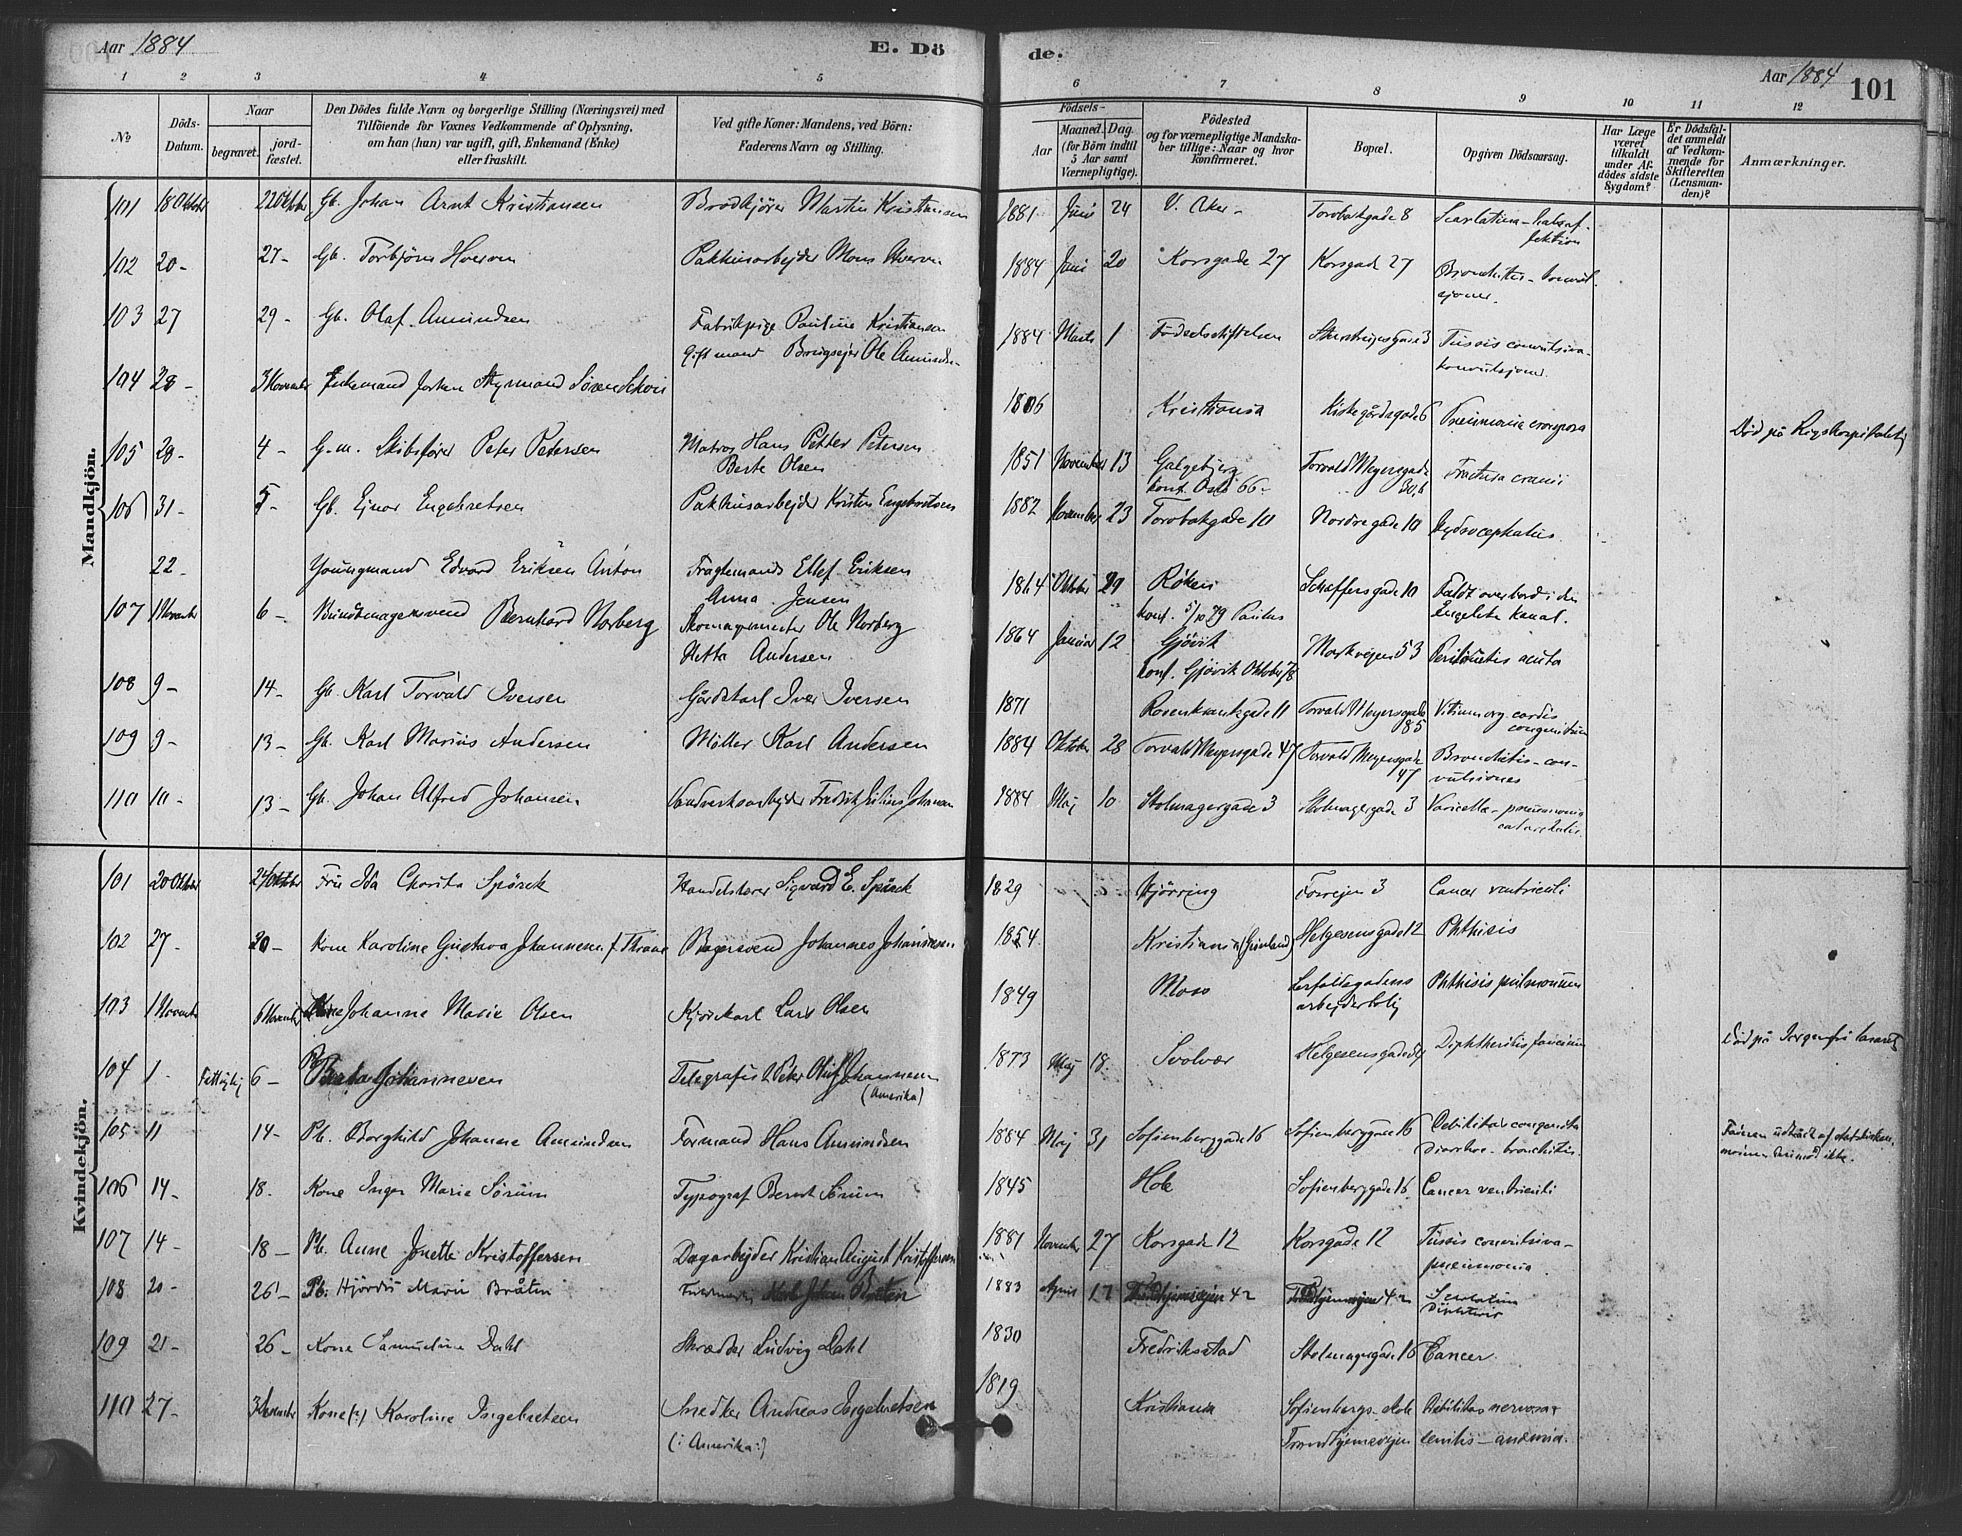 Aar 1884
E. Dö
de.
Aar 1884
101
1 2 3 4 5 6 7 8 9 10 11 12
No
Döds-Datum.
Naar
begravet.
jord-fæstet.
Den Dödes fulde Navn og borgerlige Stilling (Næringsvei) med
Tilföiende for Voxnes Vedkommende af Oplysning,
om han (hun) var ugift, gift, Enkemand (Enke)
eller fraskilt.
Ved gifte Koner: Mandens, ved Börn:
Faderens Navn og Stilling.
Födsels-
Aar
Maaned. Dag.
(for Börn indtil
5 Aar samt
Værnepligtige).
Födested
og for værnepligtige Mandska-
ber tillige: Naar og hvor
konfirmeret.
Bopæl.
Opgiven Dödsaarsag.
Har Læge
været
tilkaldt
under Af-
dödes sidste
Sygdom?
Er Dödsfal-
det anmeldt
af Vedkom-
mende for
Skifteretten
(Lensman-
den)?
Anmærkninger.
Mandkjön.
101 18 Oktober 22 Oktober Gb. Johan Arnt Kristiansen Brødkjører Martin Kristiansen 1881 Juni 24 V. Aker Torvbakgade 8 Scarlatina – halsaf-
fektion
102 20 – 27 – Gb. Torbjörn Pakhusarbejder Mons 1884 Juni 20 Korsgade 27 Korsgade 27 Bronchitis – konvul-
sjoner.
103 27 29 – Gb. Olaf Amundsen Fabrikpige Pauline Kristiansen 1884 Marts 1 Fødselsstiftelsen Tussis convulsiva –
Gift mand Brugsejer Ole Amundsen konvulsjoner.
104 28 – 3 November Enkemand Styrmand Sören 1806 Kristiania Pneumonia crouposa
105 29 – 4 – G.m. Skibsfører Peter Petersen Matros Hans Petter Petersen 1851 November 13 Galgebjerg Torvald Meyersgade Fractura cranii Död på Rigshospitalet
Berte Olsen konf. Oslo 66 – 30, b
106 31 – 5 – Gb. Ejnar Engebretsen Pakhusarbejder Kristen Engebretsen 1882 November 23 Torvbakgade 10 Nordregade 10 Hydrocephalus
22 – Youngmand Edvard Eriksen Anton Fragtemand Ellef Eriksen 1864 Oktober 29 Röken Schæffersgade 10 Faldt overbord i den
Anna Jensen konf. 5/10 79 Paulus Engelske kanal.
107 1 November 6 – Buntmagersvend Bernhard Norberg Skomagermester Ole Norberg 1864 Januar 12 Gjövik Markvejen 53 Peritonitis acuta
Andersen konf. Gjövik Oktober 78
108 9 – 14 – Gb. Karl Torvald Iversen Gårdskarl Iver Iversen 1871 Rosenkrantzgade 11 Torvald Meyersgade Vitium org. cordis
85 congenitum
109 9 – 13 – Gb. Karl Marius Andersen Möller Karl Andersen 1884 Oktober 28 Torvald Meyersgade 47 Torvald Meyersgade Bronchitis – con-
47 vulsiones
110 10 – 13 – Gb. Johan Alfred Johansen Vandverksarbejder Fredrik Julius Johansen 1884 Maj 10 Stolmagergade 3 Stolmagergade 3 Varicella – pneumonia
catarrhalis.
Kvindekjön.
101 20 Oktober 24 Oktober Fru Ida Charita Spörck Handelsborer Sigvard E. Spörck 1829 Hjörring Fossvejen 3 Cancer ventriculi
102 27 – 30 – Kone Karoline Gustava Johannesen f. Thrane Bagersvend Johannes Johannesen 1854 Kristiania (Grönland) Helgesensgade 12 Phthisis
103 1 November 6 November Kone Johanne Marie Olsen Kjörekarl Lars Olsen 1849 Moss Lerfaldsgadens Phthisis pulmonum
arbejderbolig
104 1 – Fattiglig 6 – Berta Johannesen Telegrafist Peter Olaf Johannesen 1873 Maj 18. Svolvær Helgesensgade Diphtheritis faucium
(Amerika)
105 11 14 – Pb. Borghild Johanne Amundsen Formand Hans Amundsen 1884 Maj 31 Sofienberggade 16 Sofienberggade 16 Debilitas congenita
Diarrhoe – bronchitis.
106 14 – 18. Kone Inger Marie Sörum Typograf Bernt Sörum 1845 Hole Sofienberggade 16 Cancer ventriculi
107 14 – 18 – Pb. Anne Jonette Kristoffersen Dagarbejder Kristian August Kristoffersen 1881 November 27 Korsgade 12 Korsgade 12 Tussis convulsiva –
pneumonia.
108 20 – 26 – Pb. Hjördis Marie Bråten Karl Johan Bråten 1883 April 17 Trondhjemsvejen 42 Trondhjemsvejen 42 Scarlatina
Diphterit
109 21 – 26 – Kone Samueline Dahl Skrædder Ludvig Dahl 1830 Fredrikstad Stolmagergade 16 Cancer
110 27 – 3 December Kone (?) Karoline Ingebretsen Snedker Andreas Ingebretsen 1819 Kristiania Sofienbergs Debilitas nervosa
(: Amerika :) Trondhjemsvejen senilis – anæmia.